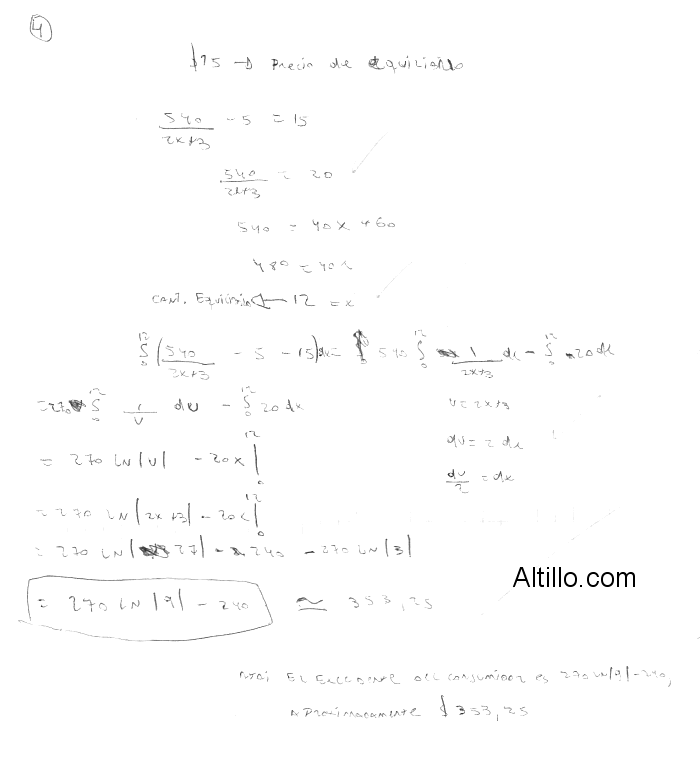 4
$15 → Precio de equilibrio
540/(2x+3) - 5 = 15
540/(2x+3) = 20
540 = 40x + 60
480 = 40x
Cant. Equilibrio ← 12 = x
∫₀¹² (540/(2x+3) - 5 - 15) dx = 540 ∫₀¹² 1/(2x+3) dx - ∫₀¹² 20 dx
= 270 ∫₀¹² 1/U du - ∫₀¹² 20 dx
U = 2x+3
du = 2 dx
du/2 = dx
= 270 LN|U| - 20x |₀¹²
= 270 LN|2x+3| - 20x |₀¹²
= 270 LN|27| - 240 - 270 LN|3|
= 270 LN|9| - 240 ≃ 353,25
Altillo.com
El Excedente del consumidor es 270 LN|9| - 240,
Aproximadamente $353,25